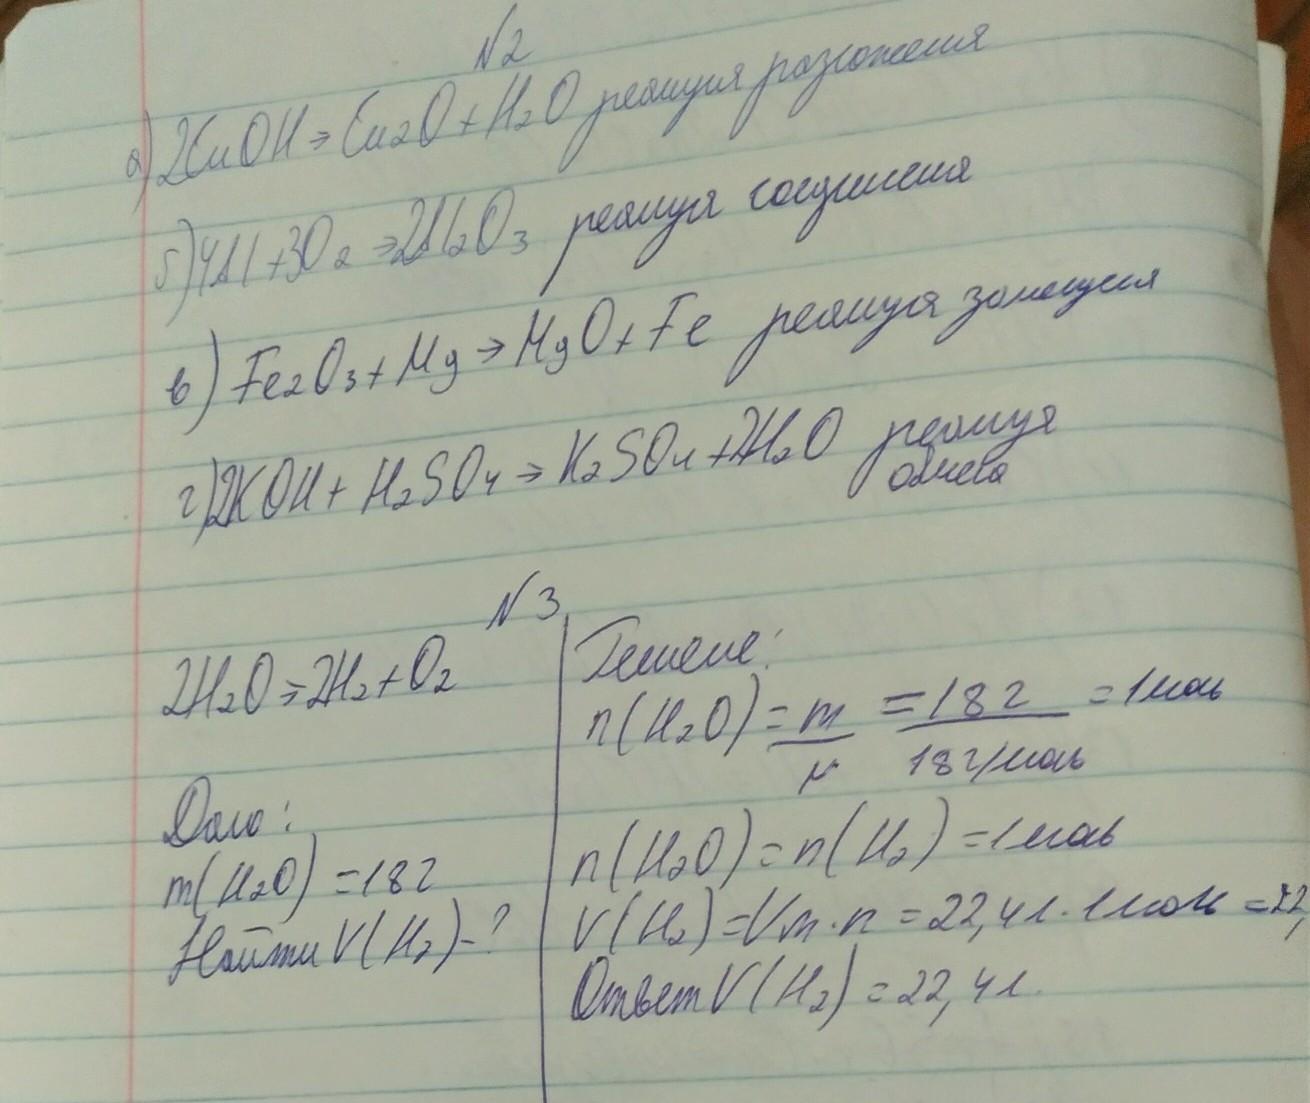 N2
а) 2CuOH → Cu₂O + H₂O реакция разложения
б) 4Al + 3O₂ → 2Al₂O₃ реакция соединения
в) Fe₂O₃ + Mg → MgO + Fe реакция замещения
г) 2KOH + H₂SO₄ → K₂SO₄ + 2H₂O реакция
обмена
N3
2H₂O → 2H₂ + O₂
Дано:
m(H₂O) = 18г
Найти V(H₂) - ?
Решение:
n(H₂O) = m/M = 18г/18г/моль = 1моль
n(H₂O) = n(H₂) = 1моль
V(H₂) = Vm · n = 22,4л · 1моль = 22,
Ответ V(H₂) = 22,4л.